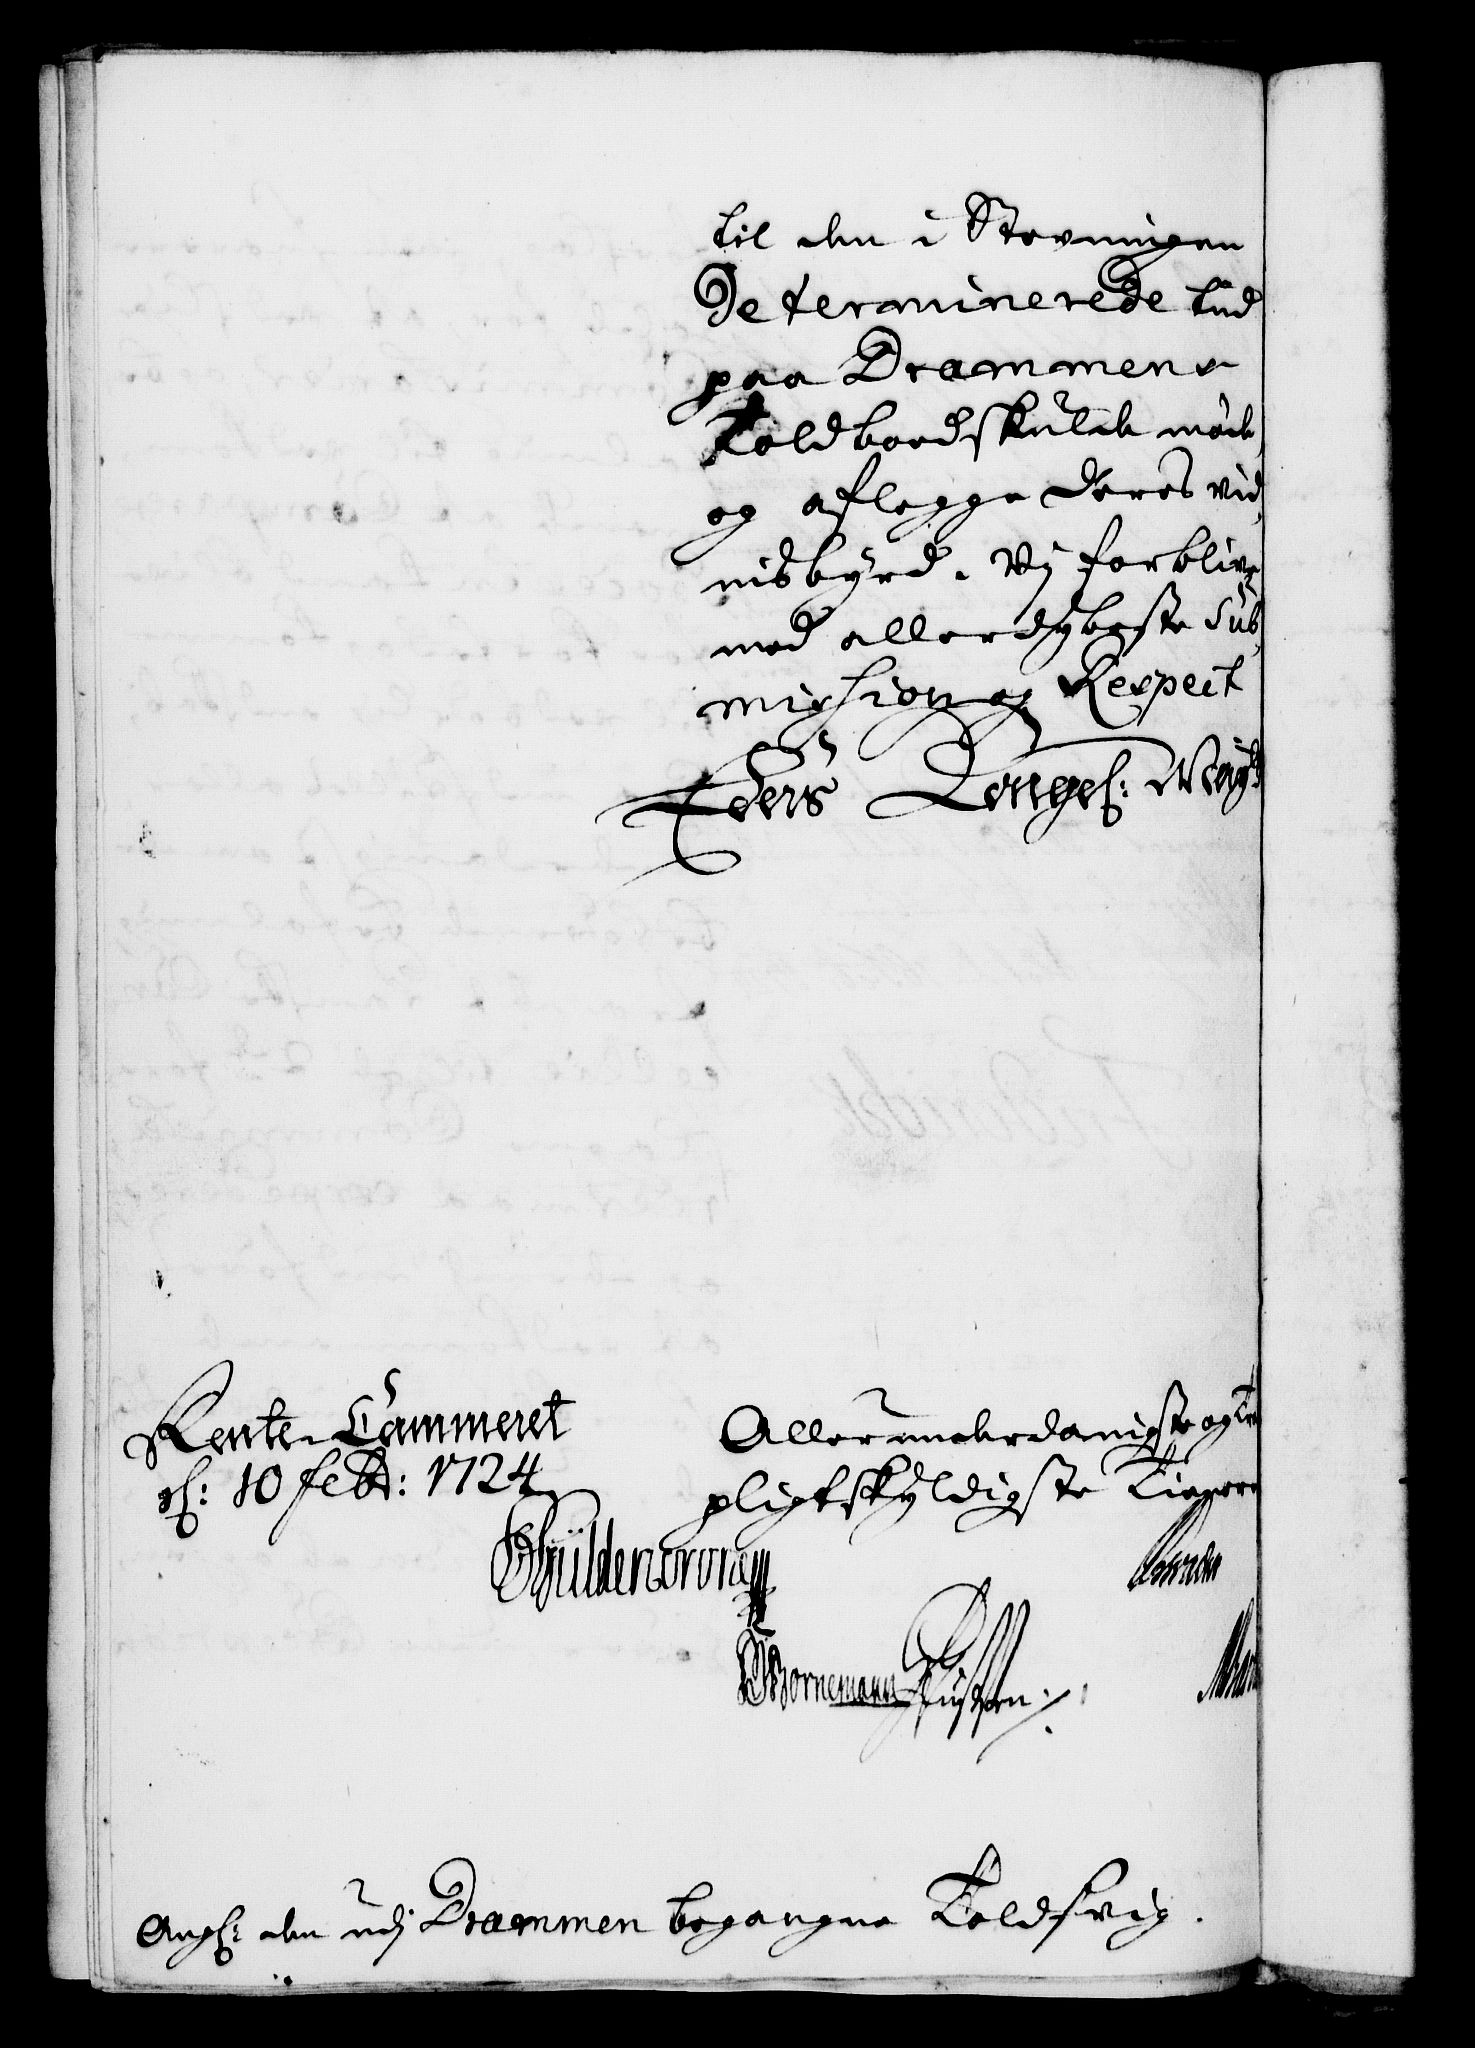 til den i Stevningen
Determinerede tiid
paa Drammens
Toldboed skulde møde,
og aflegge deres vid,
nisbyrd. Vi forblive
med allerdybeste Sub,
mission og Respect
Eders Kongel: May<sup>ts</sup>
Rente-Cammeret
d: 10 Febr: 1724
Allerunderdanigste og tro
pligtskyldigste Tienere
Güldencrone
WBornemann
Angl: den udj Drammen begangne Toldsvig.